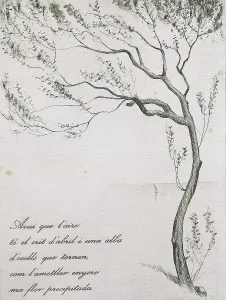 Avui que l'aire
té el crit d'abril i una alba
d'ocells que tornen,
com l'ametller enyoro
ma flor precipitada